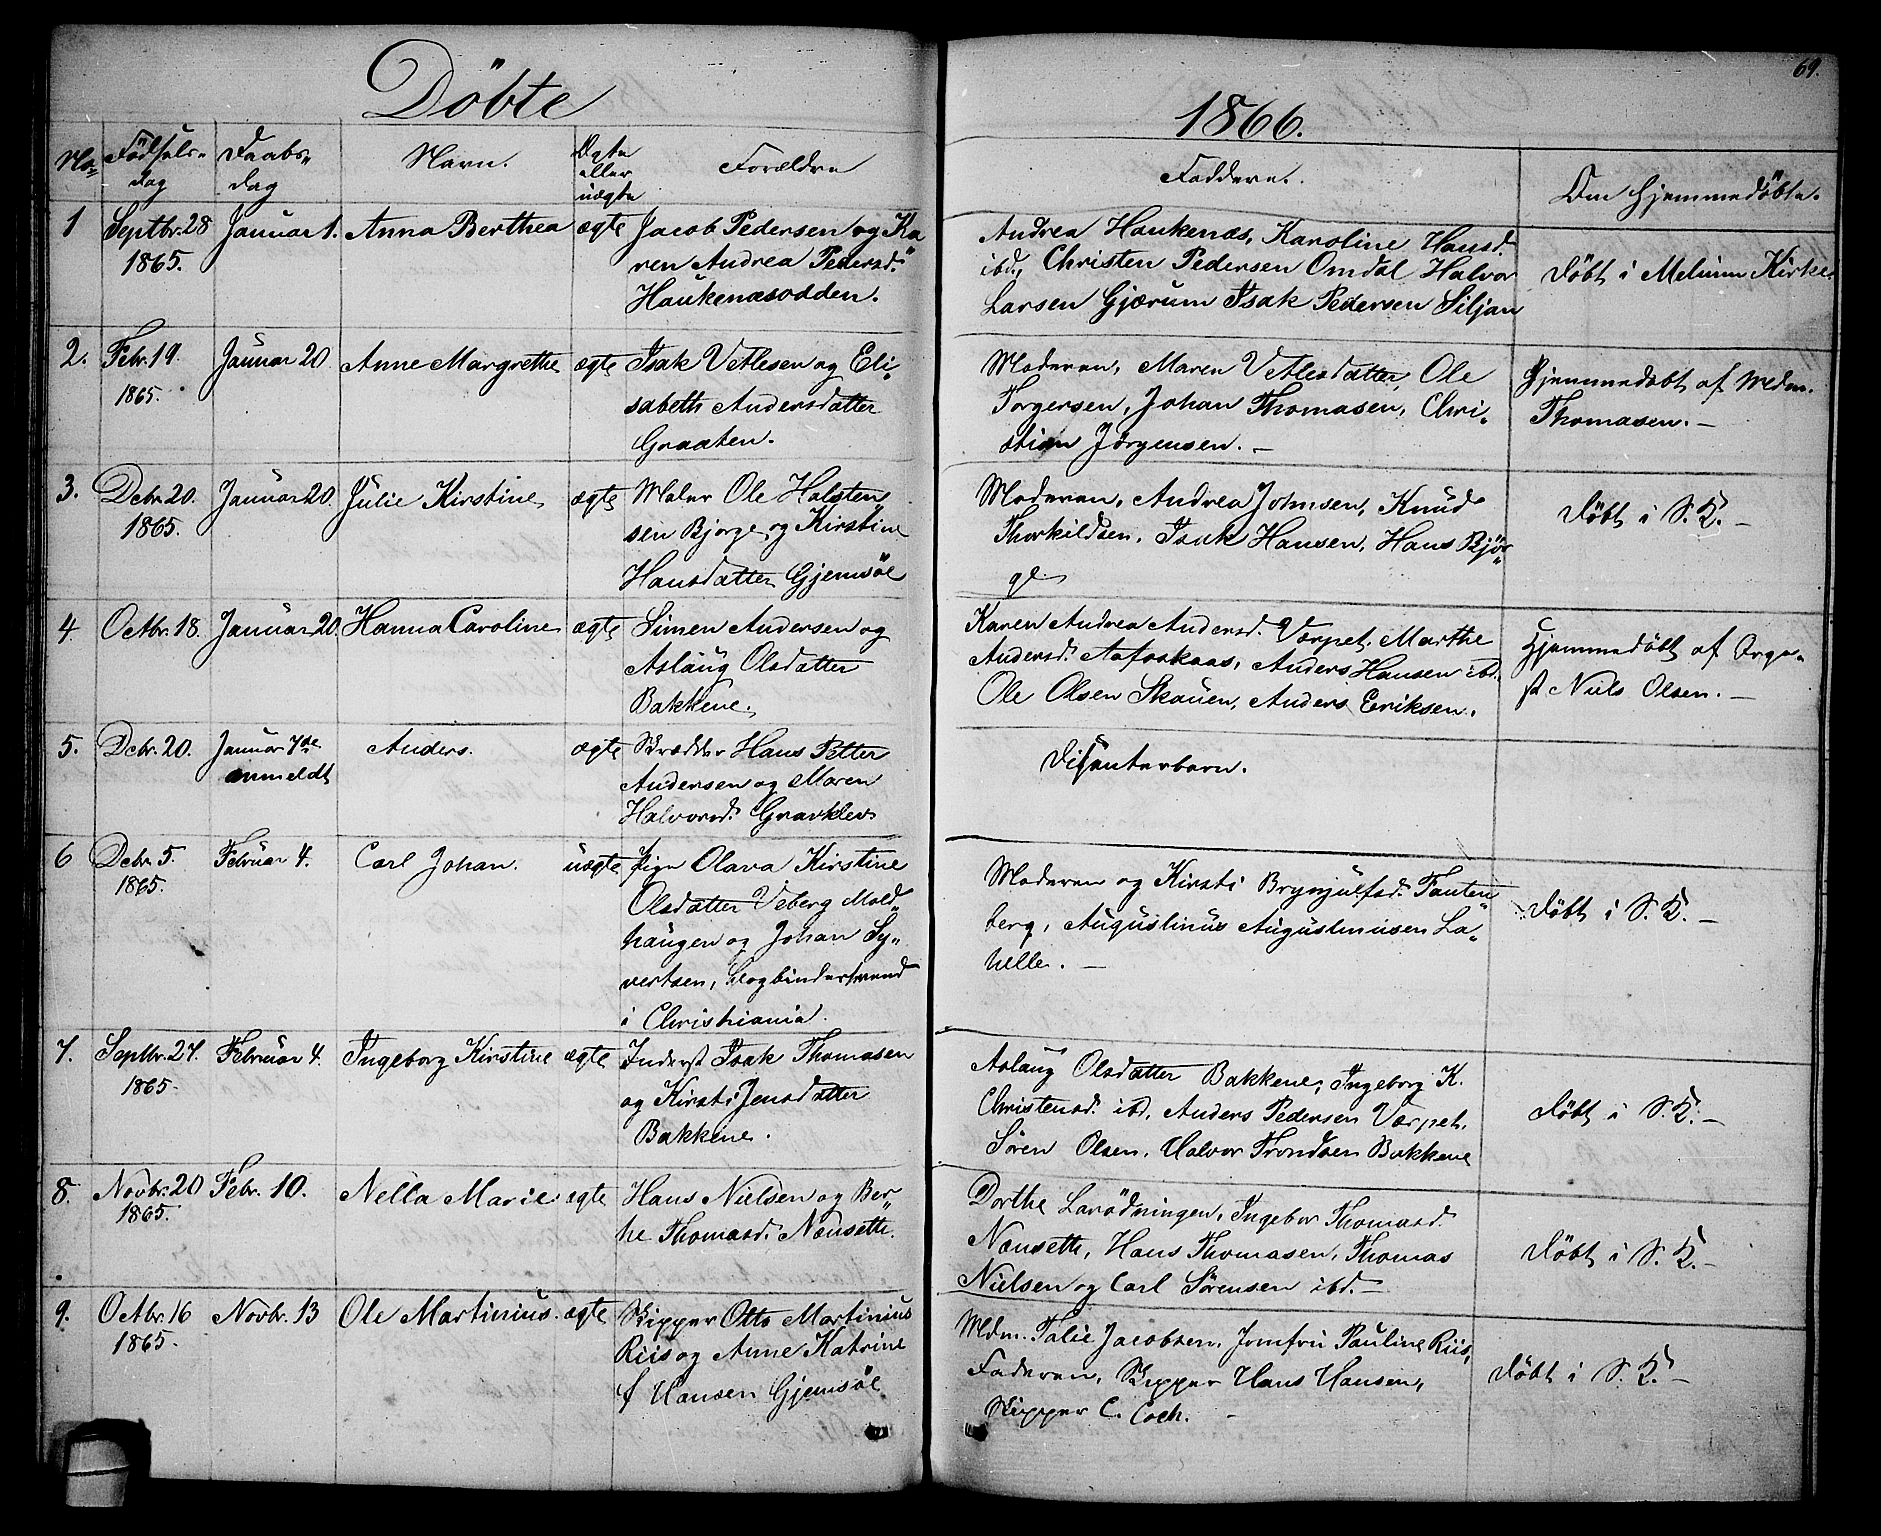 Döbte
1866.
69.
No Födsels-dag Daabs-dag Navn. Ægte eller uægte Forældre Faddere. Om Hjemmedöbte.
1 Septbr. 28 Januar 1. Anna Berthea ægte Jacob Pedersen og Ka
1865. ren Andrea Pedersd.
Haukenæsodden.
Andrea Haukenæs, Karoline Hansd.
ibd., Christen Pedersen Omdal Halvor
Larsen Gjærum Isak Pedersen Siljan
Döbt i Melum Kirke
2. Febr. 19. Januar 20 Anne Margrethe ægte Isak Vetlesen og Eli-
1865. sabeth Andersdatter
Graaten.
Moderen, Maren Vetlesdatter, Ole
Torgersen, Johan Thomasen, Chri-
stian Jörgensen. –
Hjemmedöbt af Mdm.
Thomasen. –
3. Decbr. 20. Januar 20. Julie Kirstine ægte Maler Ole Halsten
1865. sen Bjorge og Kirstine
Hansdatter Gjemsöe
Moderen, Andrea Johnsen, Knud
Thorkildsen, Isak Hansen, Hans Björ-
ge
Döbt i S. K. –
4 Octbr. 18. Januar 20. Hanna Caroline ægte Simen Andersen og
Aslaug Olsdatter
Bakkene.
Karen Andrea Andersd.Værpet, Marthe
Andersd. Aafoskaas, Anders Hansen ibd.
Ole Olsen Skauen, Anders Eriksen.
Hjemmedöbt af Orga-
st Niels Olsen. –
5. Decbr. 20. Januar 7de Anders. ægte Hans Petter
anmeldt Andersen og Maren
Halvorsd. Gravklev
Disenterbarn.
6 Decbr. 5. Februar 4. Carl Johan. uægte Pige Olava Kirstine
1865. Olsdatter Veberg Mold-
haugen og Johan Sy-
vertsen, Bogbindersvend
i Christiania.
Moderen og Kirsti Brynjulfsd. Fanten-
berg, Augustinus Augustinusen La-
helle. –
Döbt i S. K. –
7. Septbr. 27. Februar 4. Ingeborg Kirstine ægte Inderst Isak Thomasen
1865. og Kirsti Jensdatter
Bakkene.
Aslaug Olsdatter Bakkene, Ingeborg K.
Christensd. ibd, Anders Pedersen Værpet.
Sören Olsen, Halvor Trondsen Bakkene
Döbt i S. K. –
8. Novbr. 20 Febr. 10. Nella Marie ægte Hans Nielsen og Ber-
1865. the Thomasd. Næusette.
Dorthe Larödningen, Ingebor Thomasd.
Næusette, Hans Thomasen, Thomas
Nielsen og Carl Sörensen ibd. –
Döbt i S. K. –
9. Octbr. 16 Novbr. 13 Ole Martinius. ægte Skipper Otto Martinius
1865. Riis og Anne Katrine
f Hansen Gjemsöe
Mdm. Talie Jacobsen, Jomfru Pauline Riis,
Faderen, Skipper Hans Hansen,
Skipper C. Coch. –
Döbt i S. K. –